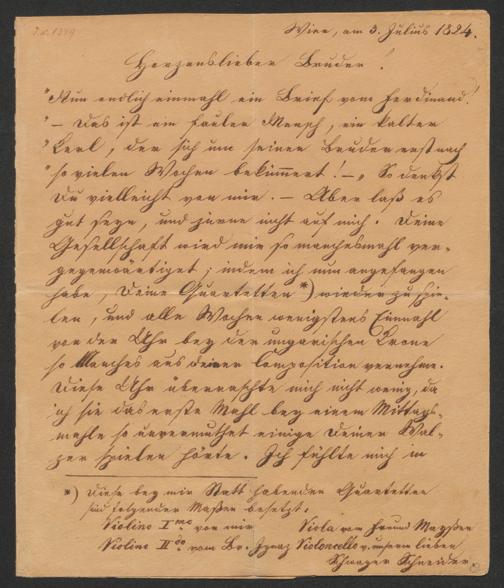 Wien, am 3. Julius 1824.
Herzenslieber Bruder!
"Nun endlich einmahl ein Brief vom Ferdinand!
"– Das ist ein fauler Mensch, ein kalter
"Kerl, der sich um seinen Bruder erst nach
"so vielen Wochen bekümmert! –" So denkst
Du vielleicht von mir. – Aber laß es
gut seyn, und zürne nicht auf mich. Deine
Gesellschaft wird mir so manchesmahl ver-
gegenwärtiget; indem ich nun angefangen
habe, Deine Quartetten *) wieder zu spie-
len, und alle Wochen wenigstens Einmahl
von der Uhr bey der ungarischen Krone
so Manches aus deiner Composition vernehme.
Diese Uhr überraschte mich nicht wenig, da
ich sie das erste Mahl bey einem Mittags-
mahle so unvermuthet einige Deiner Wal-
zer spielen hörte. Ich fühlte mich in
*) Diese bey mir Statt habenden Quartetten
sind folgender Maßen besetzt.
Violino I^mo von mir Viola von Freund Mayssen
Violino II^do vom Br. Ignaz Violoncello v. unserm lieben
Schwager Schneider.